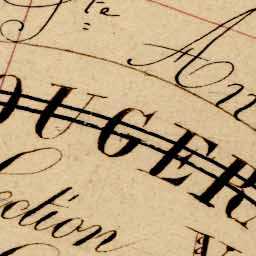 Ste An
OUGER
ection V